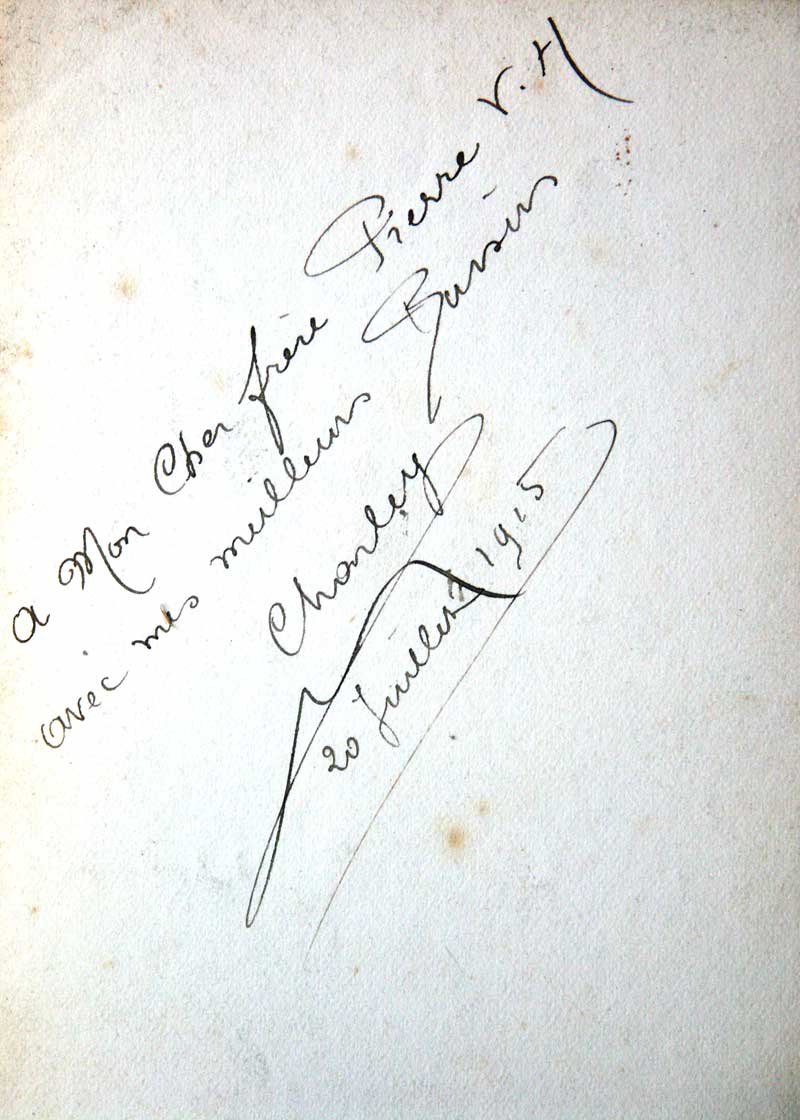 a Mon Cher frère Pierre V. H
avec mes meilleurs Baisers
Charley
20 Juillet 1915